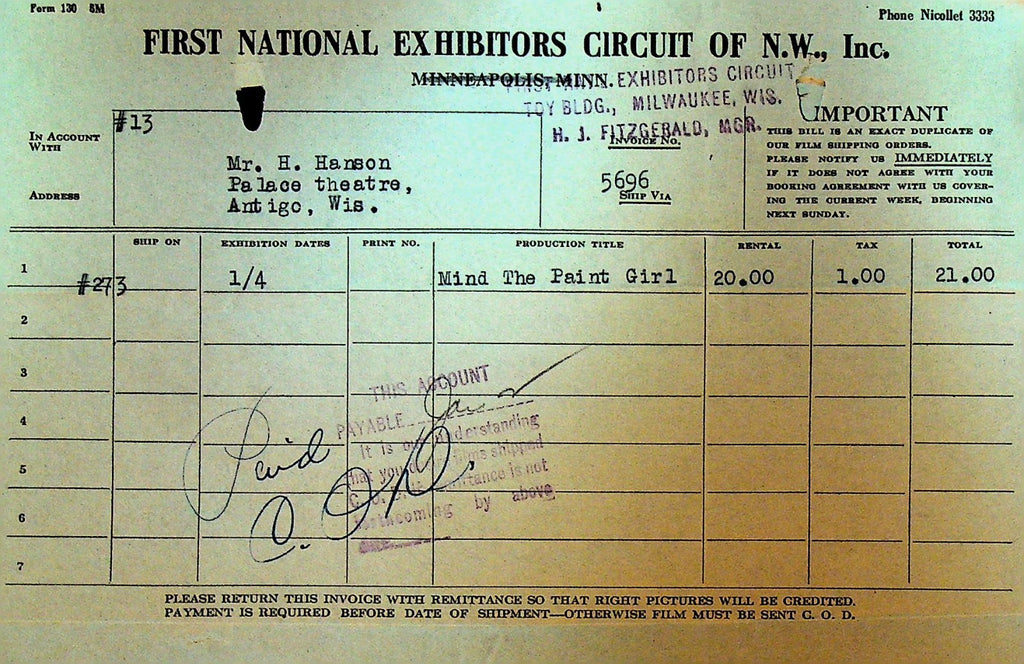 Form 130 5M
Phone Nicollet 3333
FIRST NATIONAL EXHIBITORS CIRCUIT OF N.W., Inc.
MINNEAPOLIS, MINN.
EXHIBITORS CIRCUIT
TOY BLDG., MILWAUKEE, WIS.
H. J. FITZGERALD, MGR.
IN ACCOUNT
WITH
#13
Mr. H. Hanson
ADDRESS
Palace theatre,
Antigo, Wis.
INVOICE NO.
5696
SHIP VIA
IMPORTANT
THIS BILL IS AN EXACT DUPLICATE OF
OUR FILM SHIPPING ORDERS.
PLEASE NOTIFY US IMMEDIATELY
IF IT DOES NOT AGREE WITH YOUR
BOOKING AGREEMENT WITH US COVER-
ING THE CURRENT WEEK, BEGINNING
NEXT SUNDAY.
SHIP ON EXHIBITION DATES PRINT NO. PRODUCTION TITLE RENTAL TAX TOTAL
1 #273 1/4 Mind The Paint Girl 20.00 1.00 21.00
2
3
4
5
6
7
THIS ACCOUNT
PAYABLE
It is our understanding
that you films shipped
remittance is not
forthcoming by above
Paid
C. O. D.
PLEASE RETURN THIS INVOICE WITH REMITTANCE SO THAT RIGHT PICTURES WILL BE CREDITED.
PAYMENT IS REQUIRED BEFORE DATE OF SHIPMENT—OTHERWISE FILM MUST BE SENT C. O. D.